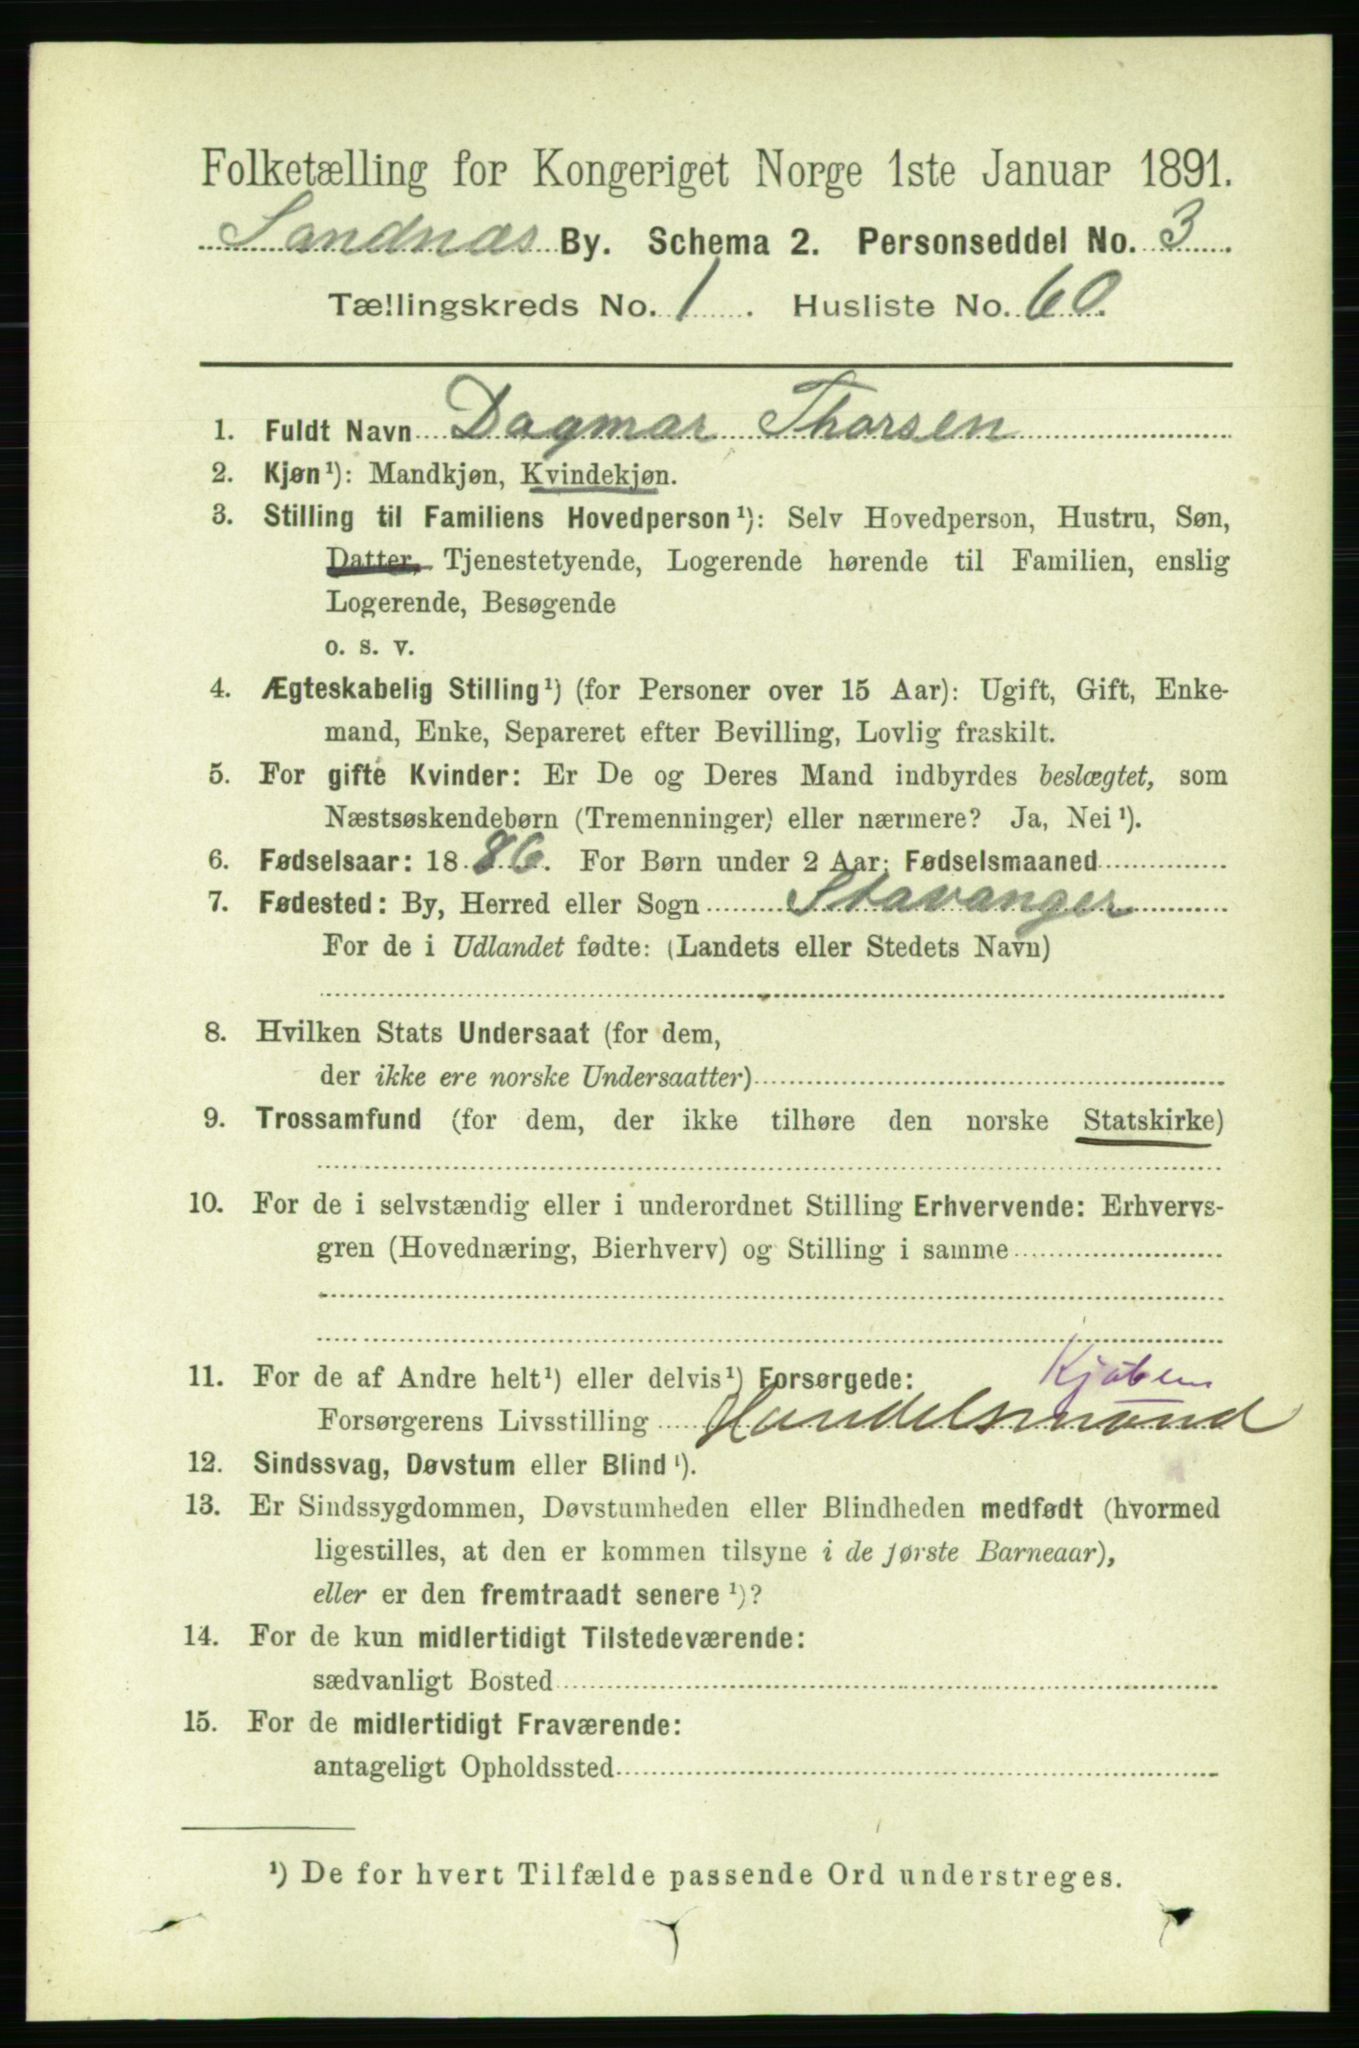 Folketælling for Kongeriget Norge 1ste Januar 1891.
Sandnæs By. Schema 2. Personseddel No. 3.
Tællingskreds No. 1. Husliste No. 60.
1. Fuldt Navn Dagmar Thorsen
2. Kjøn¹): Mandkjøn, Kvindekjøn.
3. Stilling til Familiens Hovedperson¹): Selv Hovedperson, Hustru, Søn,
Datter, Tjenestetyende, Logerende hørende til Familien, enslig
Logerende, Besøgende
o. s. v.
4. Ægteskabelig Stilling¹) (for Personer over 15 Aar): Ugift, Gift, Enke-
mand, Enke, Separeret efter Bevilling, Lovlig fraskilt.
5. For gifte Kvinder: Er De og Deres Mand indbyrdes beslægtet, som
Næstsøskendebørn (Tremenninger) eller nærmere? Ja, Nei¹).
6. Fødselsaar: 1886. For Børn under 2 Aar: Fødselsmaaned
7. Fødested: By, Herred eller Sogn Stavanger
For de i Udlandet fødte: (Landets eller Stedets Navn)
8. Hvilken Stats Undersaat (for dem,
der ikke ere norske Undersaatter)
9. Trossamfund (for dem, der ikke tilhøre den norske Statskirke)
10. For de i selvstændig eller i underordnet Stilling Erhvervende: Erhvervs-
gren (Hovednæring, Bierhverv) og Stilling i samme
11. For de af Andre helt¹) eller delvis¹) Forsørgede: Kjøbm
Forsørgerens Livsstilling Handelsmand
12. Sindssvag, Døvstum eller Blind¹).
13. Er Sindssygdommen, Døvstumheden eller Blindheden medfødt (hvormed
ligestilles, at den er kommen tilsyne i de første Barneaar),
eller er den fremtraadt senere¹)?
14. For de kun midlertidigt Tilstedeværende:
sædvanligt Bosted
15. For de midlertidigt Fraværende:
antageligt Opholdssted
¹) De for hvert Tilfælde passende Ord understreges.